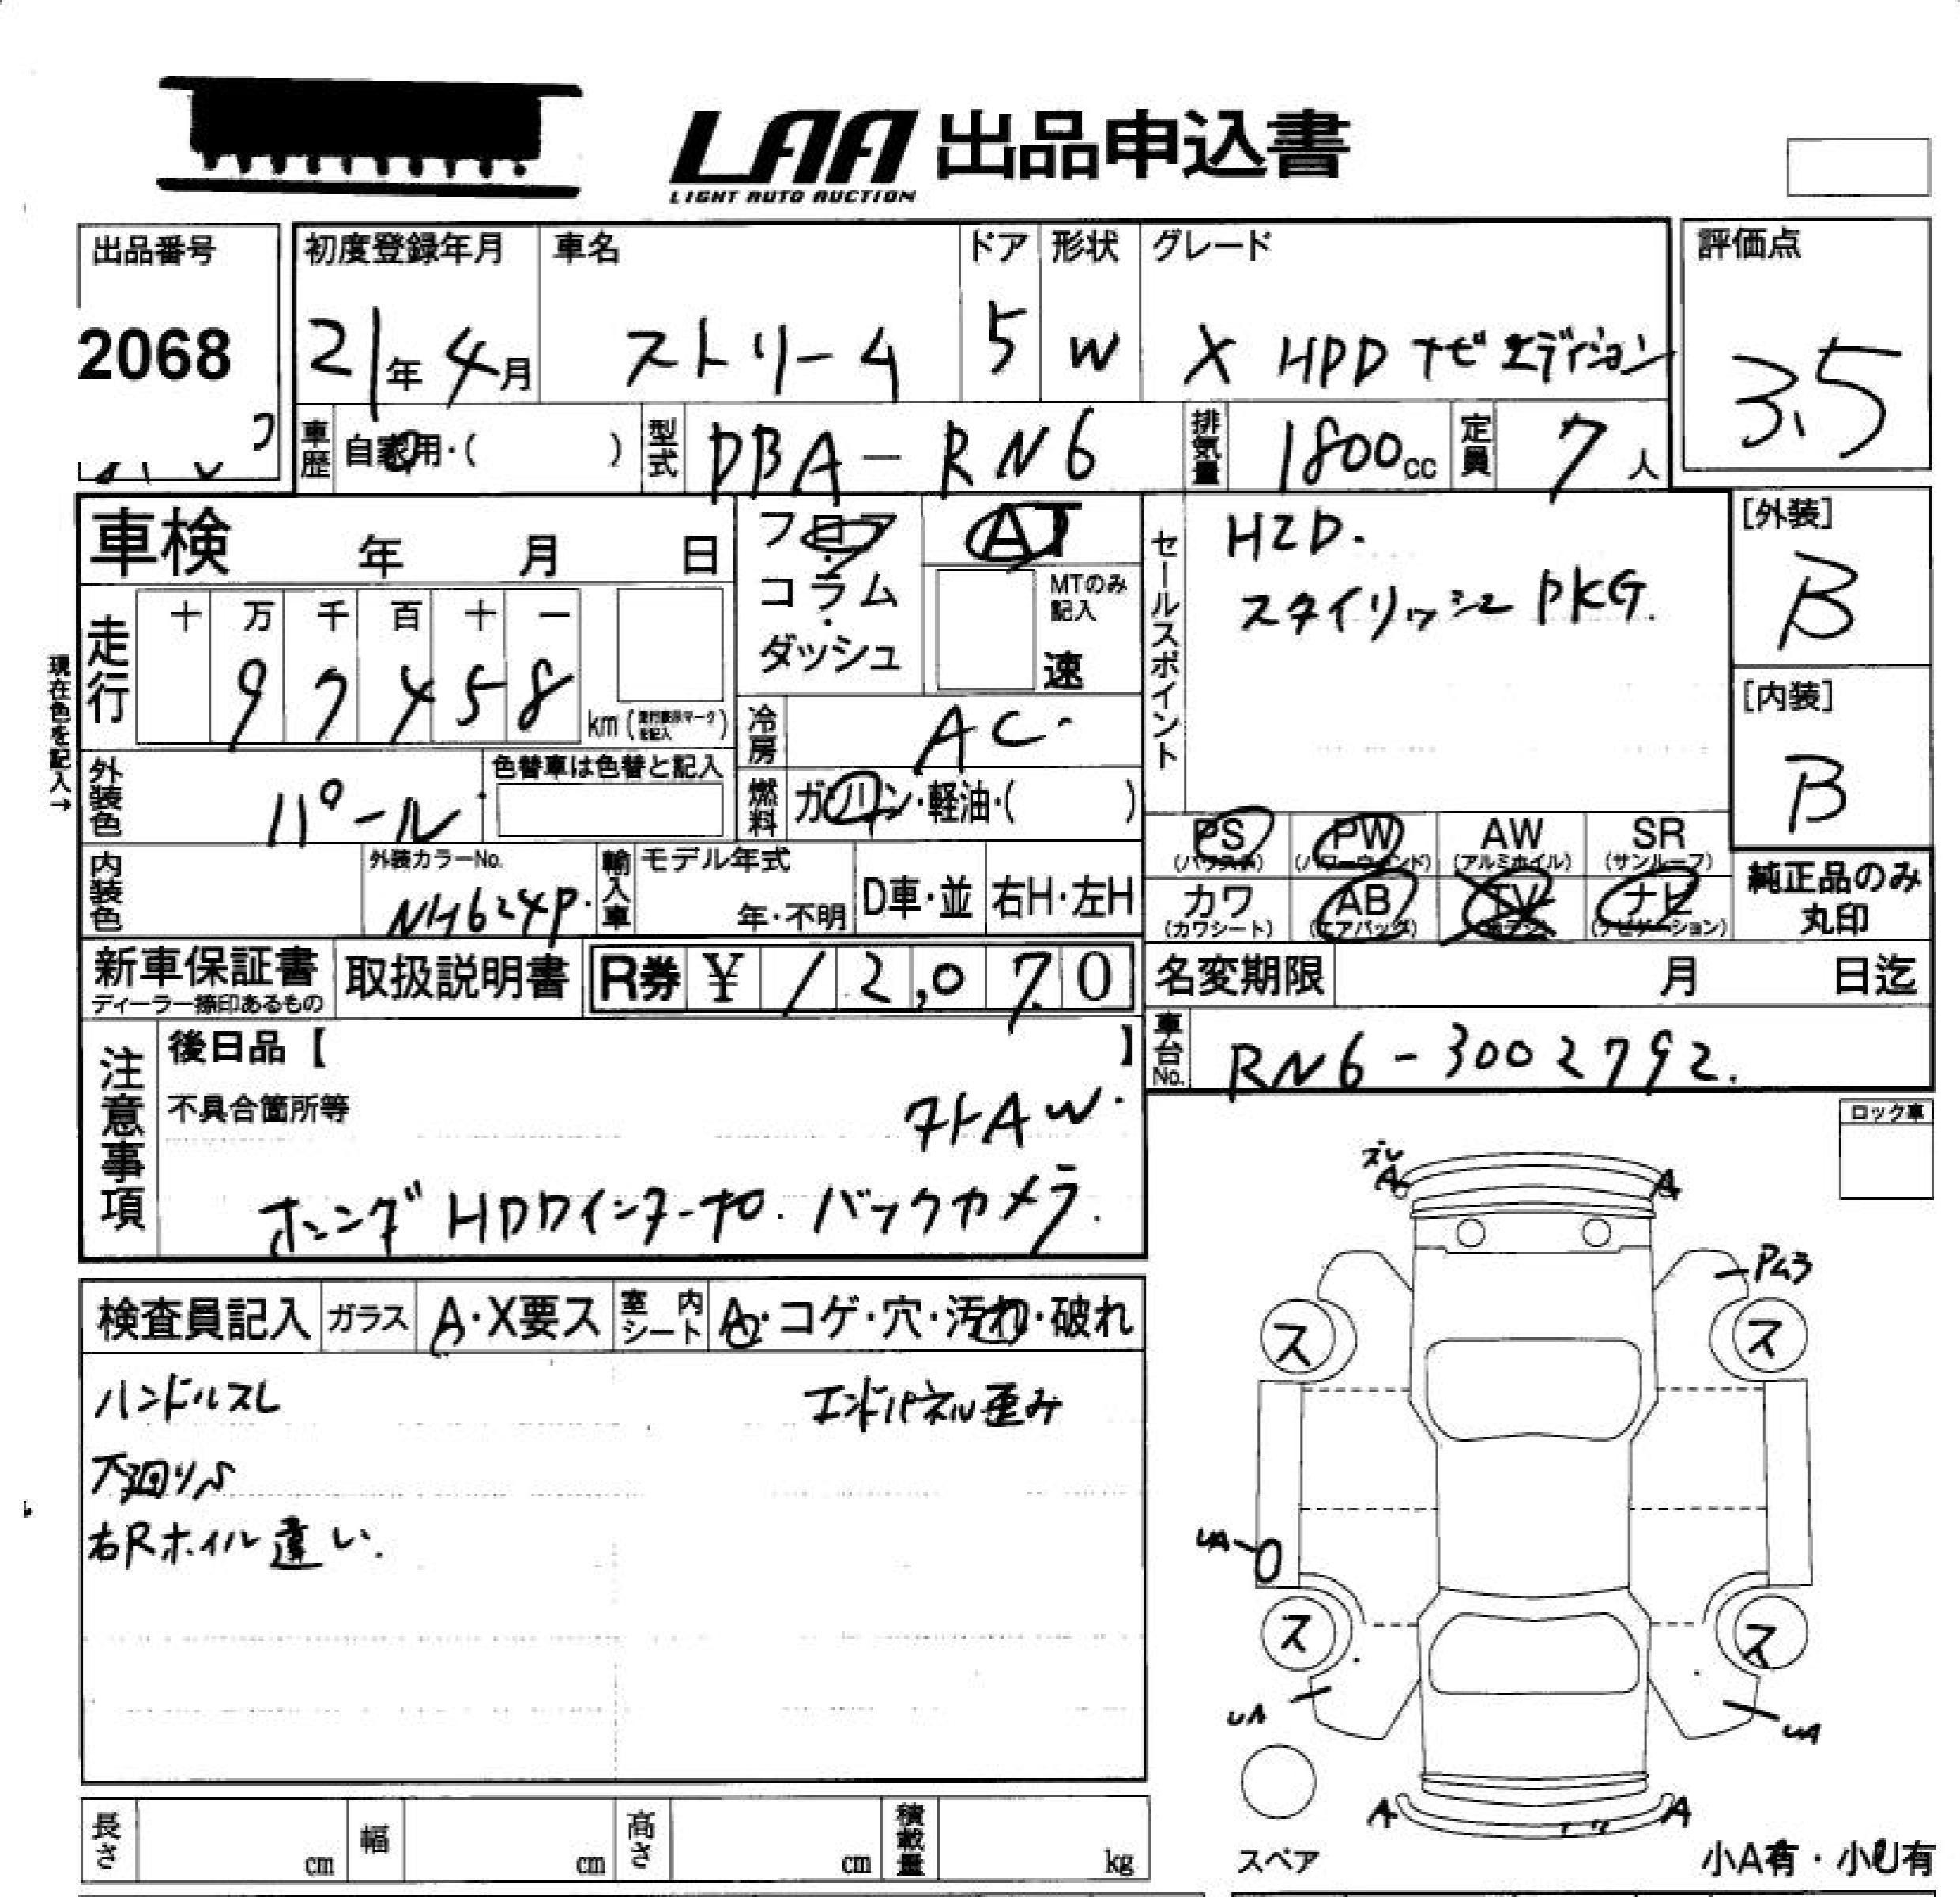 LAA 出品申込書
LIGHT AUTO AUCTION
出品番号
2068
初度登録年月
21年 4月
車名
ストリーム
ドア
5
形状
W
グレード
X HDD ナビ エディション
評価点
3.5
車歴 自家用・( )
型式 DBA-RN6
排気量 1800cc
定員 7人
車検 年 月 日
フロア・コラム・ダッシュ
AT
MTのみ記入
速
セールスポイント
HID.
スタイリッシュ PKG.
[外装]
B
[内装]
B
現在色を記入→
走行
十 万 千 百 十 一
9 7 4 5 8
km (走行表示マークを記入)
冷房 AC
外装色 パール
色替車は色替と記入
燃料 ガソリン・軽油・( )
PS (パワステ)
PW (パワーウィンド)
AW (アルミホイル)
SR (サンルーフ)
カワ (カワシート)
AB (エアバッグ)
TV
ナビ (ナビゲーション)
純正品のみ
丸印
内装色
外装カラーNo.
NH624P.
輸入車
モデル年式
年・不明
D車・並
右H・左H
新車保証書
ディーラー捺印あるもの
取扱説明書
R券 ¥ 12,070
名変期限 月 日迄
車台No. RN6-3002792.
注意事項
後日品【 】
不具合箇所等
ホンダ HDDインターナビ. バックカメラ.
ロック車
検査員記入
ガラス A・X要ス
室内シート A・コゲ・穴・汚れ・破れ
ハンドルスレ
エンドパネル歪み
下廻りS
右Rホイル違い.
ズレ
A
A
Pムラ
ス
ス
UA
ス
ス
UA
UA
A
A
スペア
小A有・小U有
長さ cm
幅 cm
高さ cm
積載量 kg